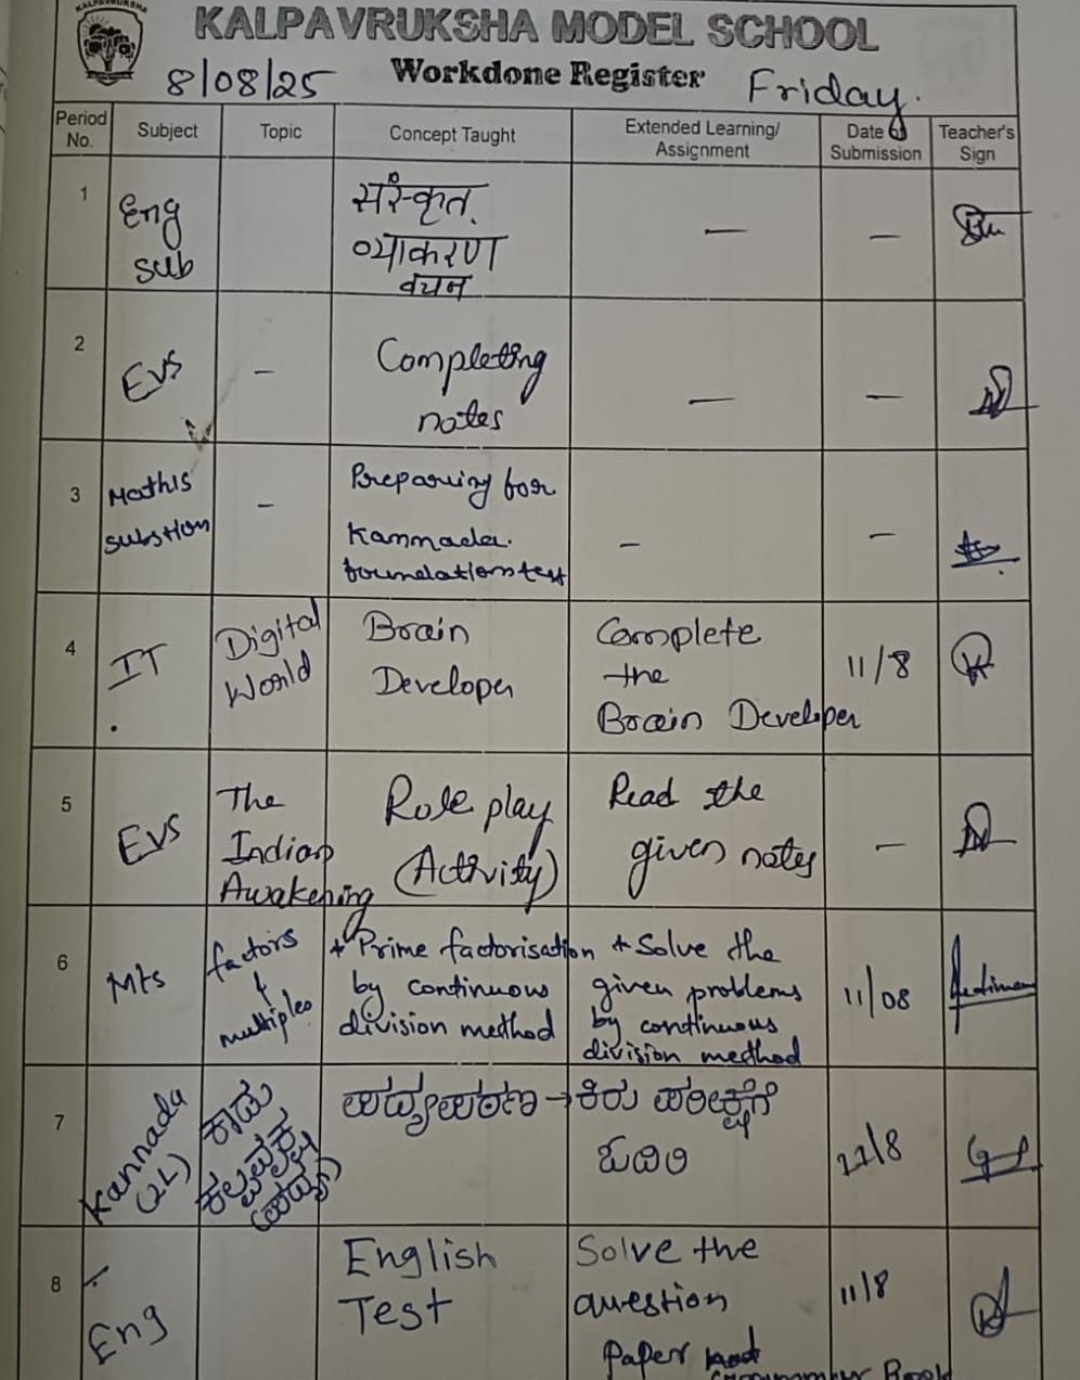 KALPAVRUKSHA
KALPAVRUKSHA MODEL SCHOOL
8/08/25 Workdone Register Friday.
Period No. Subject Topic Concept Taught Extended Learning/ Assignment Date of Submission Teacher's Sign
1 Eng sub संस्कृत. व्याकरण वचन — —
2 EVS – Completing notes — —
3 Maths substion – Preparing for Kannada. foundation test – –
4 IT Digital World Brain Developer Complete the Brain Developer 11/8
5 EVS The Indian Awakening Role play (Activity) Read the given notes –
6 Mts factors & multiples * Prime factorisation by continuous division method * Solve the given problems by continuous division method 11/08
7 Kannada (2L) ಕಾಮ ಕಲ್ಪವೃಕ್ಷ (ಪದ್ಯ) ಪದ್ಯಪಠಣ → ಕಿರು ಪರೀಕ್ಷೆಗೆ ಓದಿರಿ 11/8
8 Eng English Test Solve the question paper Book 11/8